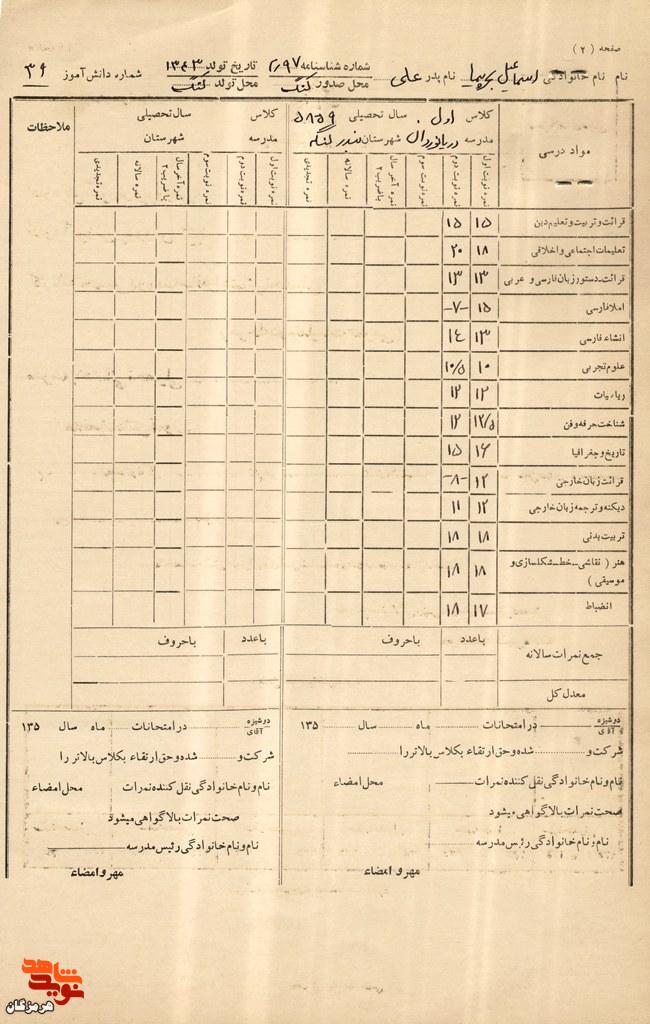 صفحه (۲)
نام نام خانوادگی اسماعیل نام پدر علی شماره شناسنامه ۲۰۹۷ تاریخ تولد ۱۳۴۳ شماره دانش آموز ۳۹
محل صدور کنگ محل تولد کنگ
مواد درسی کلاس اول سال تحصیلی ۵۸۵۹ کلاس سال تحصیلی ملاحظات
مدرسه دریانوردان شهرستان بندر لنگه مدرسه شهرستان
نمره نوبت اول نمره نوبت دوم نمره نوبت سوم نمره آخر سال با ضریب ۲ نمره سالانه نمره تجدیدی نمره نوبت اول نمره نوبت دوم نمره نوبت سوم نمره آخر سال با ضریب ۲ نمره سالانه نمره تجدیدی
قرائت و تربیت و تعلیم دین ۱۵ ۱۵
تعلیمات اجتماعی و اخلاقی ۱۸ ۲۰
قرائت ـ دستور زبان فارسی و عربی ۱۳ ۱۳
املاء فارسی ۱۵ -۷-
انشاء فارسی ۱۳ ۱۴
علوم تجربی ۱۰ ۱۰/۵
ریاضیات ۱۲ ۱۲
شناخت حرفه و فن ۱۲/۵ ۱۲
تاریخ و جغرافیا ۱۶ ۱۵
قرائت زبان خارجی ۱۲ -۸-
دیکته و ترجمه زبان خارجی ۱۲ ۱۱
تربیت بدنی ۱۸ ۱۸
هنر ( نقاشی ـ خط ـ شکلسازی و
موسیقی ) ۱۸ ۱۸
انضباط ۱۷ ۱۸
جمع نمرات سالانه با عدد با حروف با عدد با حروف
معدل کل
دوشیزه
آقای در امتحانات ماه سال ۱۳۵
شرکت و شده و حق ارتقاء بکلاس بالاتر را
نام و نام خانوادگی نقل کننده نمرات محل امضاء
صحت نمرات بالا گواهی میشود
نام و نام خانوادگی رئیس مدرسه
مهر و امضاء
دوشیزه
آقای در امتحانات ماه سال ۱۳۵
شرکت و شده و حق ارتقاء بکلاس بالاتر را
نام و نام خانوادگی نقل کننده نمرات محل امضاء
صحت نمرات بالا گواهی میشود
نام و نام خانوادگی رئیس مدرسه
مهر و امضاء
نوید شاهد
هرمزگان